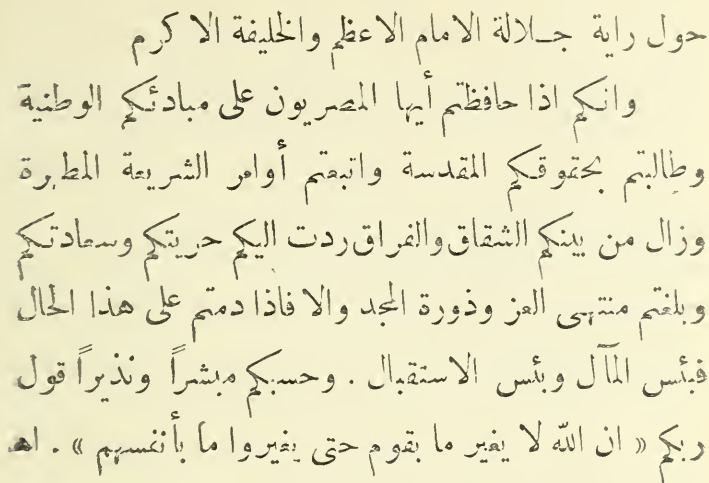 حول راية جــلالة الامام الاعظم والخليفة الاكرم
وانكم اذا حافظتم أيها المصريون على مبادئكم الوطنية
وطالبتم بحقوقكم المقدسة واتبعتم أوامر الشريعة المطهرة
وزال من بينكم الشقاق والفراق ردت اليكم حريتكم وسعادتكم
وبلغتم منتهى العز وذورة المجد والا فاذا دمتم على هذا الحال
فبئس المآل وبئس الاستقبال . وحسبكم مبشراً ونذيراً قول
ربكم « ان الله لا يغير ما بقوم حتى يغيروا ما بأنفسهم » . اهـ